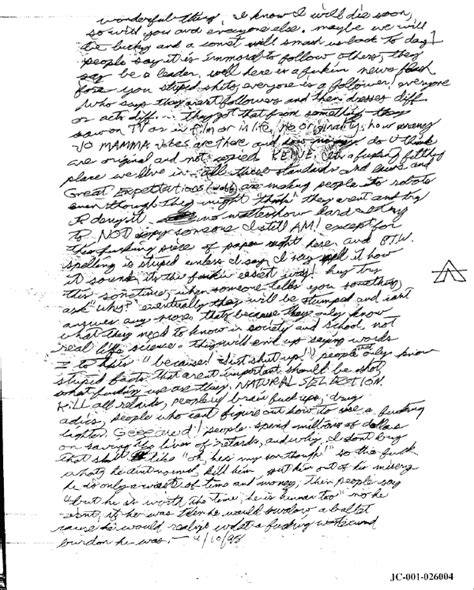 wonderful thing, I know I will die soon,
so will you and everyone else. maybe we will
be lucky and a comet will smash us back to day 1
people say it is immoral to follow others, they
say be a leader. well here is a fuckin news flash
for you stupid shits, everyone is a follower! everyone
who says they arent followers and then dresses diff
or acts diff... they got that from something they
saw on TV or in film or in life. No originality. how many
JO MAMMA jokes are there and how many do U think
are original and not copied. KEINE. its a fucking filthy
place we live in. all these standards and laws and
Great Expectations are making people into robots
even though they might think they arent and try
to deny it. no matter how hard I try
to NOT copy someone I still AM! except for
this fucking piece of paper right here, and BTW.
spelling is stupid unless I say. I say spell it how
it sounds, it's the fuckin easiest way! hey try
this sometime, when someone tells you something
ask "why?" eventually they will be stumped and cant
answer any more. thats because they only know
what they need to know in society and school, not
real life science. they will end up saying words
to this: "because! Just shut up!" people that only know
stupid facts that arent important should be shot,
what fucking use are they. NATURAL SELECTION.
Kill all retards, people w/ brain fuck ups, drug
adics, people who cant figure out how to use a fucking
lighter. Geeeawd! people spend millions of dollars
on saving the lives of retards, and why. I dont buy
that shit like "oh, hes my son though!" so the fuck
what, he aint normal, kill him. put him out of his misery.
he is only a waste of time and money, then people say
"but he is worth the time, he is human too" no he
isnt, if he was then he would swalow a bullet
cause he would realize what a fucking waste and
burdon he was. - 4/10/98
JC-001-026004